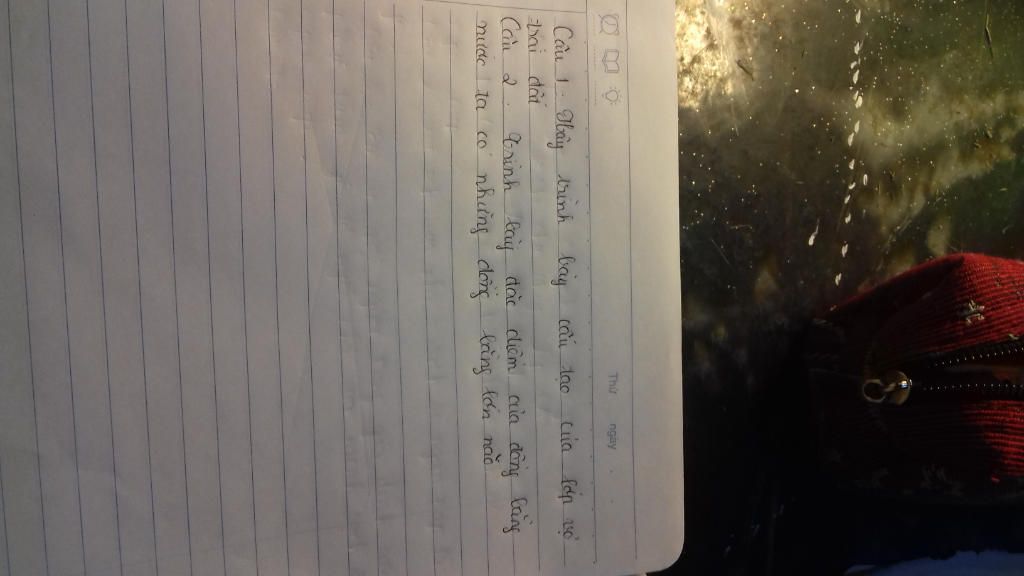 Thứ ngày
Câu 1. Hãy trình bày cấu tạo của lớp vỏ
trái đất
Câu 2. Trình bày đặc điểm của đồng bằng
nước ta có những đồng bằng lớn nào